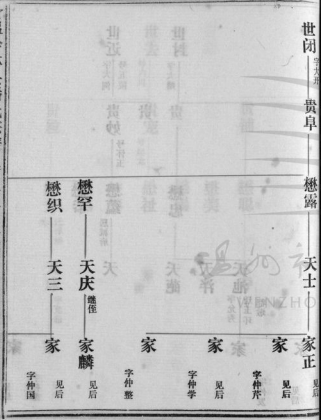 世闭
贵阜
懋露
天士
家正
见后
家
字仲芹
家
见后
字仲学
家
字仲整
懋罕
天庆
继侄
家麟
见后
懋织
天三
家
见后
字仲国